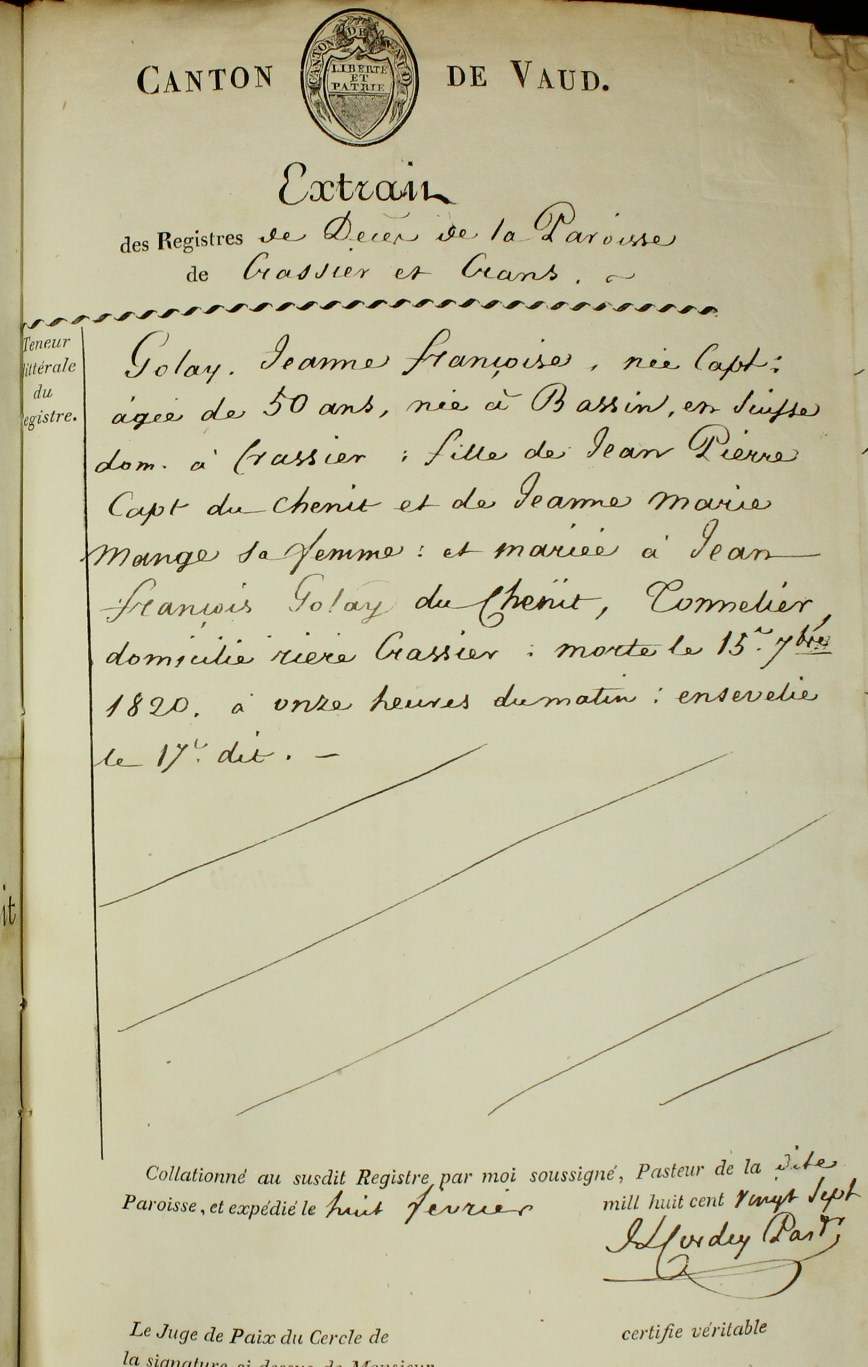 CANTON DE VAUD.
CANTON DE VAUD
LIBERTÉ
ET
PATRIE
Extrait
des Registres de Décès de la Paroisse
de Crassier et Crans.
Teneur
littérale
du
egistre.
Golay. Jeanne françoise, née Capt:
âgée de 50 ans, née à Bassin, en Suisse
dom. à Crassier : fille de Jean Pierre
Capt du Chenit et de Jeanne Marie
Mange sa femme : et mariée à Jean
françois Golaÿ du Chenit, Tonnelier,
domicilié riére Crassier : morte le 15.e 7bre
1820. à onze heures du matin : ensevelie
le 17.e dit. —
it
Collationné au susdit Registre par moi soussigné, Pasteur de la dite
Paroisse, et expédié le huit fevrier mill huit cent vingt Sept
Past.r
Le Juge de Paix du Cercle de certifie véritable
la signature ci-dessus de Monsieur